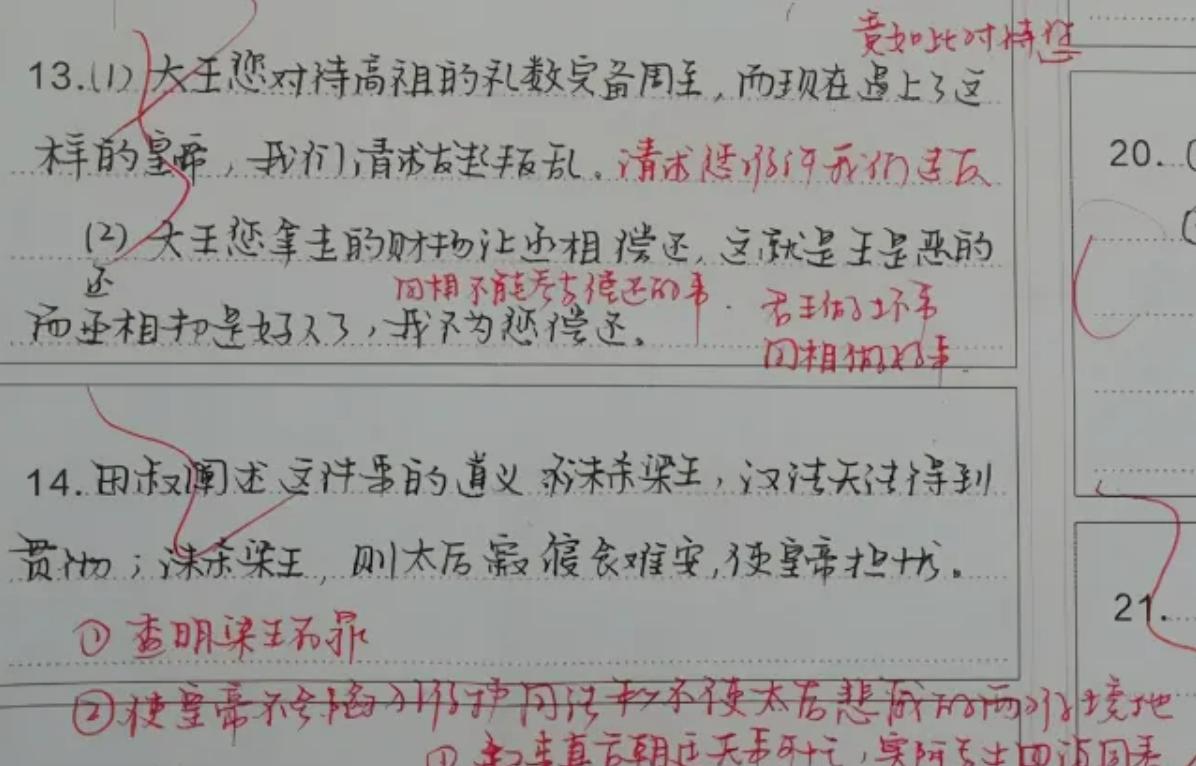 竟如此对待您
13.(1)大王您对待高祖的礼数完备周至，而现在遇上了这
样的皇帝，我们请求发起叛乱。请求您允许我们造反
20.
(2)大王您拿走的财物让丞相偿还，这就是王是恶的
还
而丞相却是好人了，我不为您偿还。
因相不能参与偿还的事.君王做了坏事
因相做好事.
14.田叔阐述这件事的道义 不诛杀梁王，汉法无法得到
贯彻；诛杀梁王，则太后寝食难安，使皇帝担忧。
①查明梁王有罪
21.
②使皇帝不会陷入维护国法和不使太后悲戚的两难境地